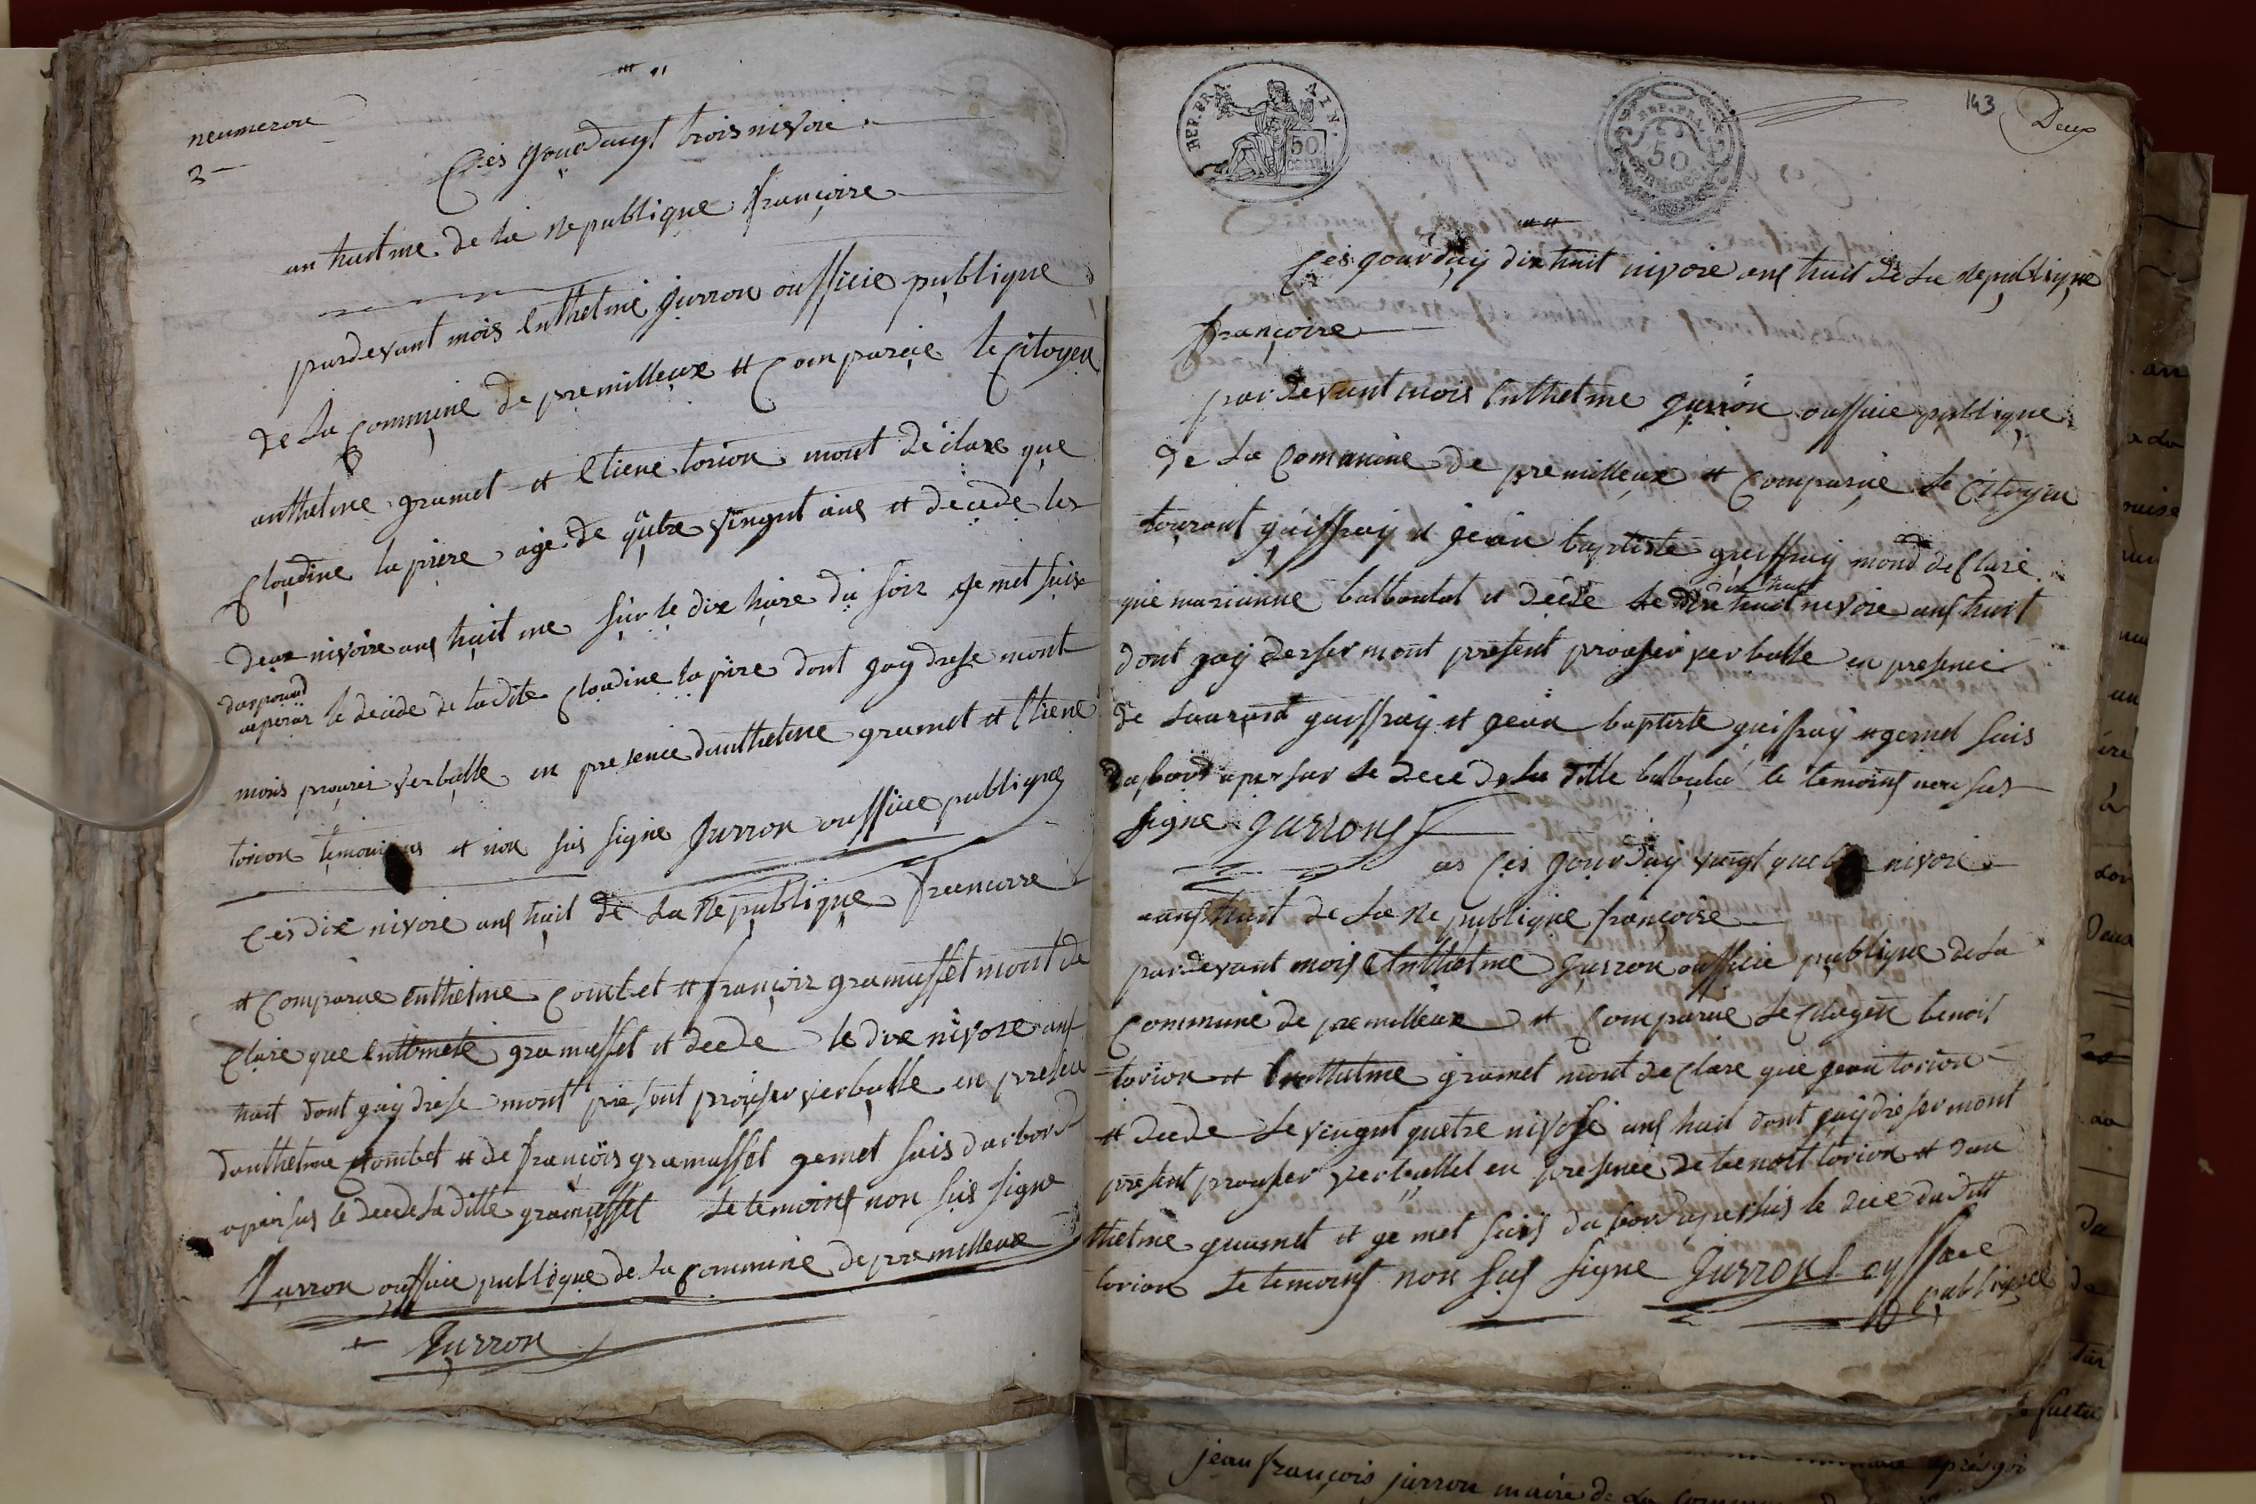 neumerou
3
Ces jourduy vingt trois nivoie
an huitme de la Republique françoise
pardevant mois enthelme jurron oufficie publique
de La commune de premilleux et Comparaie le citoyen
anthelme gramet et Etiene torion mont déclare que
Cloudine lapiere age de qutre vingnt ans et decede les
deux nivoire ans huit me sur le dix hure du soir je met suis
daspourd
apersus le decede de ladite Cloudine lapire dont jay drese mont
mois prouser verballe en presence danthelme gramet et Etiene
torion temouins et non sus signe Jurron oufficie publique
Ces dix nivoie ans huit de La Republique francoise
et Comparue enthelme Combet et françois gramusset mont de
Clare que gramusset et decede le dix nivose ans
huit dont jay drese mont present prouser verballe en presence
danthelme Combet et de françois gramusset gemet suis darbord
apersus le decede Laditte gramusset Le temoins non sus signe
Jurron oufficie publique de La Commune de premilleux
Jurron
REP. FRA
AIN.
50
CENT.
REP. FRA.
50
143
Deux
Ces jourduy dix huit nivose ans huit de La republique
françoise
pardevant mois enthelme jurron oufficie publique
de La Commune de premilleux et Comparaie Le Citoyen
Lourant guiffray et jean baptiste guiffray mond declare
dix huit
que marianne balboulat et decede Le dix huit nivoie ans huit
dont jay derser mont present prouser verballe en presence
de Laurant guiffray et jean baptiste guiffray et gemet suis
dasbord apersus Le dece de La ditte le temoins non sus
signe jurron
Ces jourduy vingt quetre nivoie
ans huit de La Republique françoise
pardevant mois Enthelme jurron oufficie publique de La
Commune de premilleux et Comparue Le Citoyen benoit
torion et Enthelme gramet mont declare que jean torion
et decede Le vingnt quetre nivose ans huit dont jay dreser mont
present prouser verballet en presence de benoit torion et dan
thelme gramet et ge met suis dabord apersus le dece dudit
torion Le temoins non sus signe Jurron oufficie
publique
jean françois jurron maire de La Commune